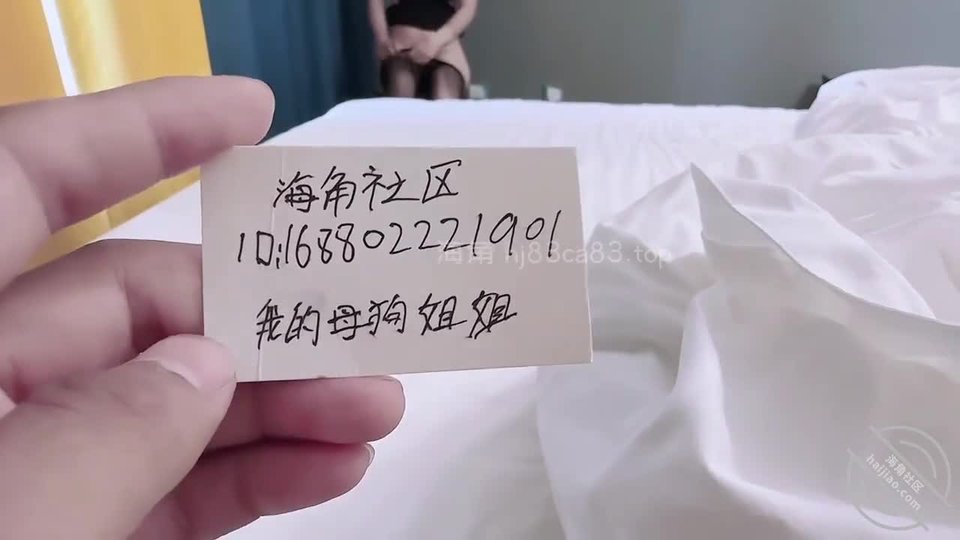 海角社区
ID:168802221901
我的母狗姐姐
海角 hj88ca83.top
海角社区
haijiao.com